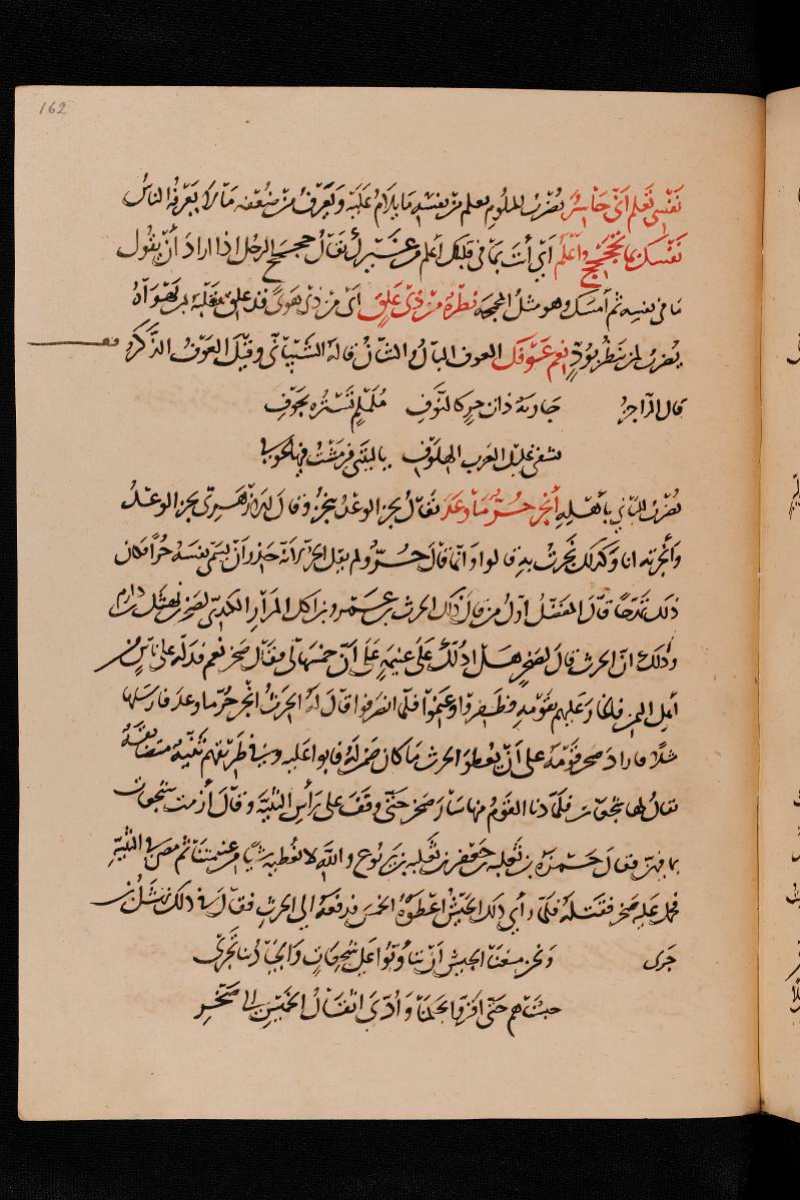 162
نَفْسِي تَعْلَم أنّي خَاسِرٌ يُضرَبُ للملُومِ يعلم من نفسه مَا يلامُ عَلَيْه وَيَعْرِفُ من ضعْفه مَا لا يعْرِفُهُ الناسُ
نَفْسكَ بما تُحَجْحِجُ أَعْلَم أي أنتَ بمَا في قلبك أعلم من غَيْرك يقالُ حجحجَ الرجُل اذا ارادَ أنْ يقُول
مَا في نفسِه ثم أمسَك وهو مثلُ المجمجه نَظْرَةٌ مِنْ ذي عَلِقٍ أي مِنْ ذي هَوىً قد علق قلبُه بمن يَهْوَاهُ
يُضربُ لمن يَنظُر بوُدٍّ نعم عَوْفُكَ العوف البالُ والشانُ قالهُ الشَّيْبَانِي وقيلَ العَوْفُ الذَّكَر
قال الرّاجِزُ جَاريةٌ ذات حِرٍ كالنَّوْفِ مُلَمْلَمٍ تَسْتُرُه بحَوْفِ
تشفي غليل العزب الهلَّوْفِ ياليتني قرمشتُ فيها عوفي
يُضربُ للباني بأهْلِهِ أنجزَ حُرٌّ مَا وعَدَ يقالُ نجز الوعدُ ينجُزُ وقالَ الازهَرِيّ نجز الوعدُ
وأنجزته انا وكذلك نَجزْتُ به قالوا وَانّما قَالَ حُرٌّ ولم يقل الحرّ لانّه حَذر أنْ يسمّي نفسَهُ حُرًّا فكان
ذلك تمدّحًا قالَ المفضّلُ اوّلُ من قال ذاك الحرث بن عَمْرو بن اكل المرَار الكندي لصَخر بن نهشَل بن دارم
وذلك انّ الحرث قالَ لصَخرٍ هَلْ ادُلّكَ عَلى غنيمَةٍ عَلَى أنّ خمسَهَا لي فقالَ صَخر نعم فدَلّه على ناسٍ من
أهل اليمن فاغارَ عَليهم بقَوْمه فظَفِروا وغنموا فلمّا انصَرفوا قالَ لهُ الحَرثُ انجز حُرّ ما وعدَ فارسَلها
مثلًا فارادَ صخر قَوْمَهُ على أنْ يعُطوا الحرث مَا كان ضَمِنَ لهُ فابوا عليه وفي طَريقهم ثَنيّة متضَايقَةٌ
يقالُ لهَا شجعَات فلمّا دنا القومُ منها سَارَ صَخر حَتّى وقَفَ على رَأسِ الثنيّة وقالَ أزمت شجعات
بما فيهنّ فقالَ حَمزَة بن ثَعلبَة بن جَعفر بن ثعلبه بن يَربُوع واللّهِ لا نُعطيه شيئًا من غنيمتنا ثم مضى في الثنيّة
فحمل عليه صَخر فقتلهُ فلمّا رأى ذلك الجَيشُ اعْطَوْهُ الخمسَ فدفعَهُ الى الحرثِ فقالَ في ذلك نهشَلُ بن
جَرى وَنحنُ منعنَا الجيش أنْ يتأوّبُوا على شجعات وَالجيادُ بنا تَجرِي
حبسناهم حَتّى اقرّوا بحكمنا وَأُدّيَ انفَالُ الخميسِ الى صَخْرِ